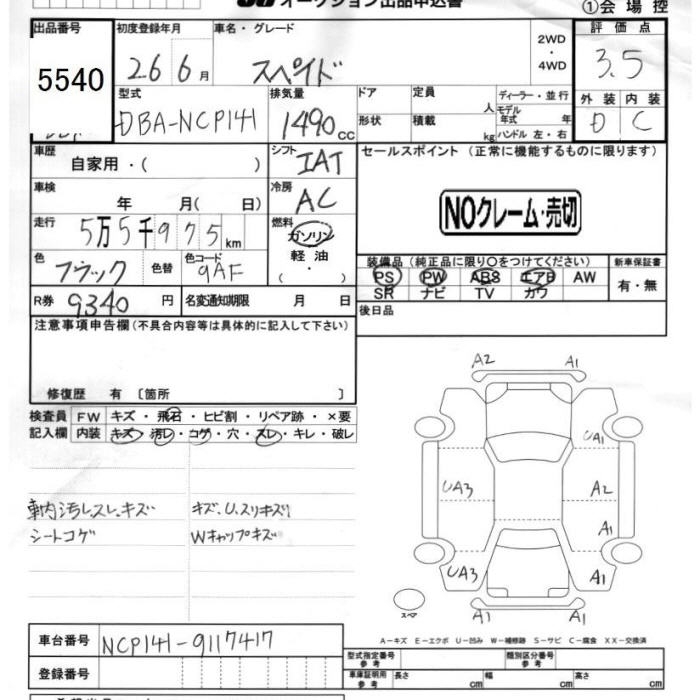 オークション出品申込書
①会場控
出品番号 初度登録年月 車名・グレード 2WD・4WD 評価点
5540 26 6月 スペイド 3.5
型式 排気量 ドア 定員 人 ディーラー・並行 外装 内装
DBA-NCP141 1490cc 形状 積載 kg モデル年式 年 ハンドル 左・右 D C
車歴 自家用・( ) シフト IAT セールスポイント (正常に機能するものに限ります)
車検 年 月( 日) 冷房 AC NOクレーム・売切
走行 5万5千975km 燃料 ガソリン 軽油 ( ・ )
色 ブラック 色替 色コード 9AF 装備品 (純正品に限り○をつけてください) 新車保証書
PS PW ABS エアB AW 有・無
SR ナビ TV カワ
R券 9340円 名変通知期限 月 日 後日品
注意事項申告欄(不具合内容等は具体的に記入して下さい)
修復歴 有 〔箇所 〕
検査員 FW キズ・飛石・ヒビ割・リペア跡・×要
記入欄 内装 キズ・汚レ・コゲ・穴・スレ・キレ・破レ
車内汚レ.スレ.キズ キズ.U.スリキズ1
シートコゲ Wキャップキズ
A2 A1
UA1
UA3 A2
A1
UA3 A1
スペア A1 A1
A-キズ E-エクボ U-凹み W-補修跡 S-サビ C-腐食 XX-交換済
車台番号 NCP141-9117417
型式指定番号 参考 類別区分番号 参考
登録番号 車庫証明用 参考 長さ cm 幅 cm 高さ cm